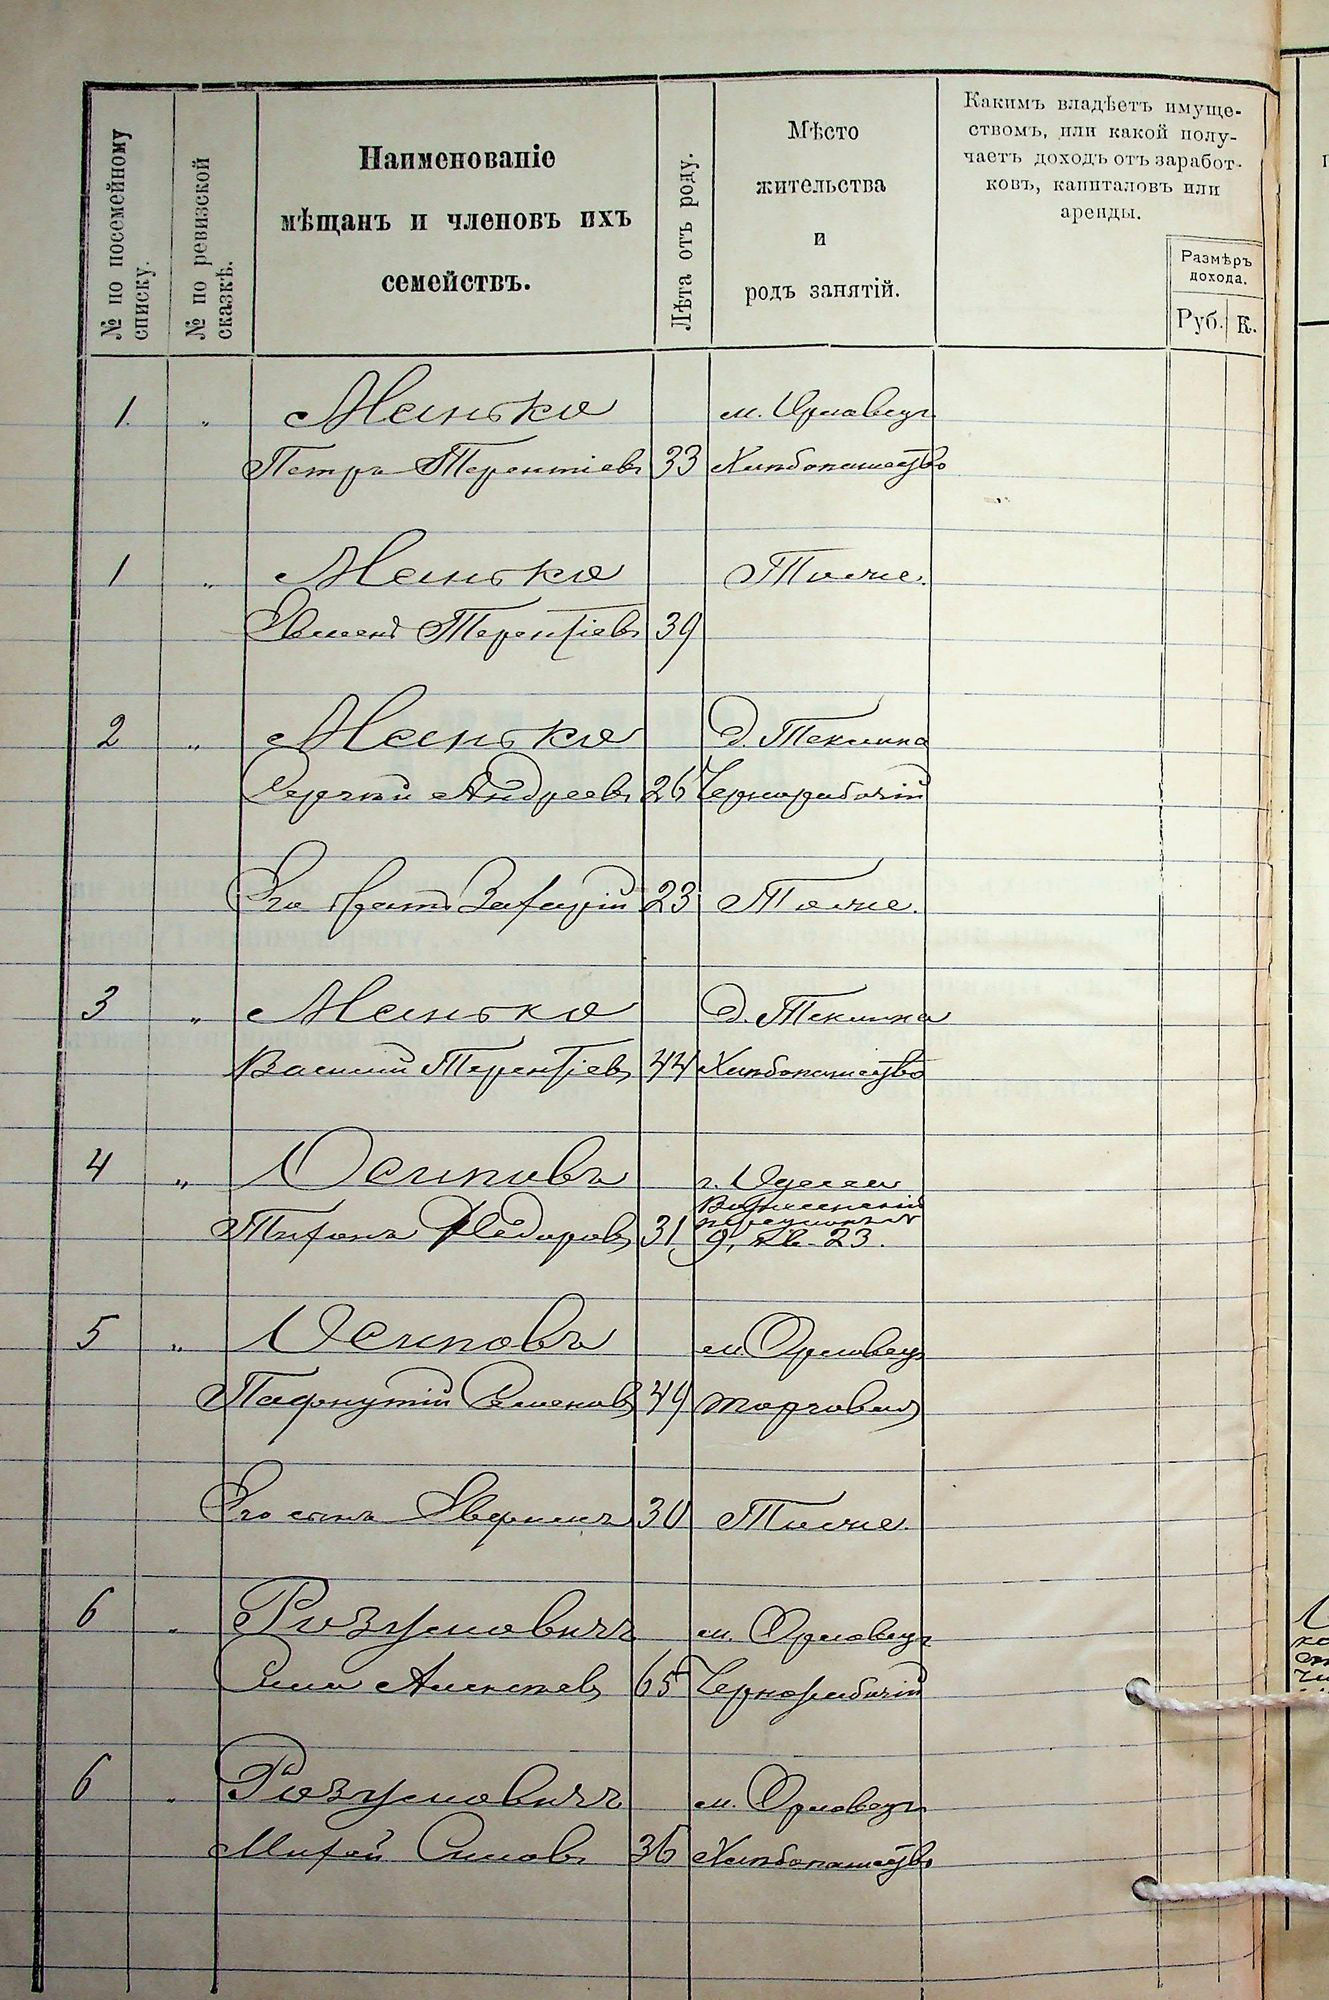 № по посемейному списку.
№ по ревизской сказкѣ.
Наименованіе
мѣщанъ и членовъ ихъ
семействъ.
Лѣта отъ роду.
Мѣсто
жительства
и
родъ занятій.
Какимъ владѣетъ имуще-
ствомъ, или какой полу-
чаетъ доходъ отъ заработ-
ковъ, капиталовъ или
аренды.
Размѣръ
дохода.
Руб. К.
1. „ Манько м. Орловецъ
Петръ Терентіевъ 33 Хлѣбопашество
1 „ Манько Тоже.
Терентіевъ 39
2 „ Манько д. Теклина
Сергѣй Андреевъ 26 Чернорабочій
Его братъ Захарій 23 Тоже.
3 „ Манько д. Теклина
Василій Терентіевъ 44 Хлѣбопашество
4 „ Осиповъ г. Одесса
Тихонъ Федоровъ 31
9, кв. 23.
5 „ Осиповъ м. Орловецъ
Пафнутій Семеновъ 49 торговля
Его сынъ 30 Тоже.
6 „ Розумовичъ м. Орловецъ
Сила Алексѣевъ 65 Чернорабочій
6 „ Розумовичъ м. Орловецъ
Михей Силовъ 36 Хлѣбопашество